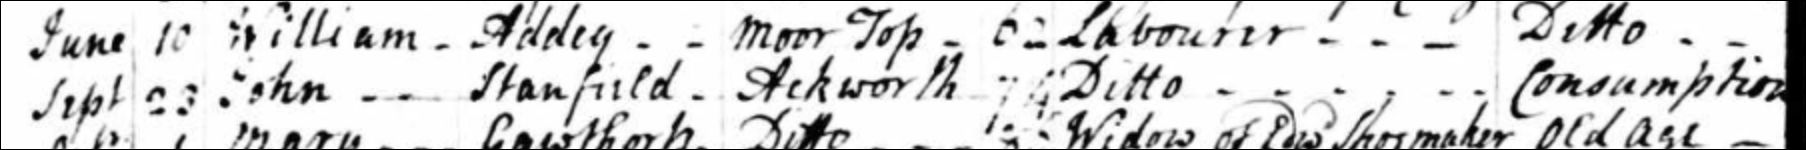 June 10 William - Addey - - Moor Top - 62 Labourer - - - Ditto - -
Sept 23 John - - Stanfield - Ackworth Ditto - - - - - - Consumption
Mary - - - Gawthorp - Ditto - - - Widow of Edw Shoemaker Old Age -